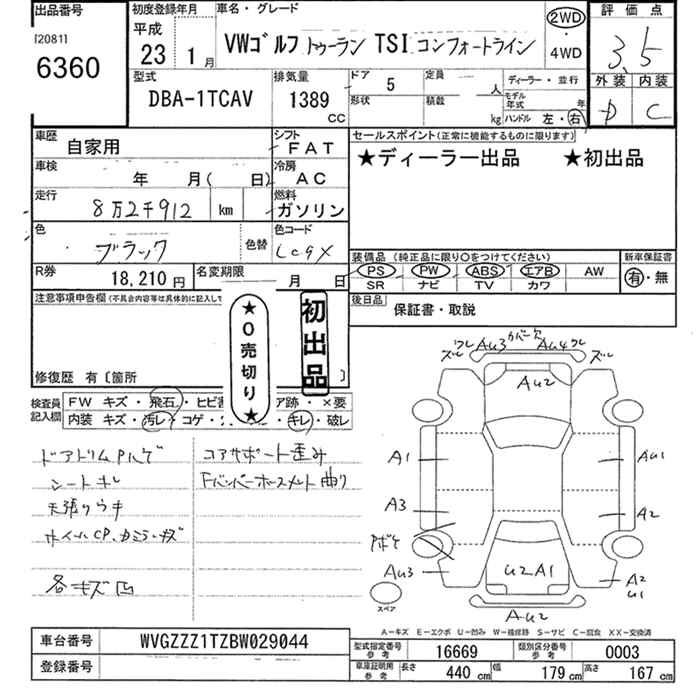 出品番号
[2081]
6360
初度登録年月
平成
23
1月
車名・グレード
VWゴルフトゥーラン TSI コンフォートライン
2WD
・
4WD
評価点
3.5
外装 内装
D C
型式
DBA-1TCAV
排気量
1389
CC
ドア 5
定員 人
形状
積載 kg
ディーラー・並行
モデル年式 年
ハンドル 左・右
車歴 自家用
シフト FAT
車検 年 月( 日)
冷房 AC
走行 8万2千912 km
燃料 ガソリン
色 ブラック
色替
色コード LC9X
R券 18,210円
名変期限 月 日
セールスポイント(正常に機能するものに限ります)
★ディーラー出品 ★初出品
装備品(純正品に限り○をつけてください)
PS PW ABS エアB AW
SR ナビ TV カワ
新車保証書
有・無
後日品
保証書・取説
注意事項申告欄(不具合内容等は具体的に記入して
★0売切り★
初出品
修復歴 有〔箇所 〕
検査員記入欄
FW キズ・飛石・ヒビ ア跡・×要
内装 キズ・汚レ・コゲ・ ・キレ・破レ
ドアトリムハゲ
シートキレ
天張りウキ
ホイールCP、カミラーキズ
各キズ凹
コアサポート歪み
Fバンパーホースメント曲り
ズレ ワレ Au3 カバー欠 Au4 ワレ ズレ
Au2
A1 Au1
A3 A2
Au3 u2A1 A2
u1
スペア
Au2
A−キズ E−エクボ U−凹み W−補修跡 S−サビ C−腐食 XX−交換済
車台番号 WVGZZZ1TZBW029044
登録番号
型式指定番号 参考 16669
類別区分番号 参考 0003
車庫証明用 参考 長さ 440 cm 幅 179 cm 高さ 167 cm